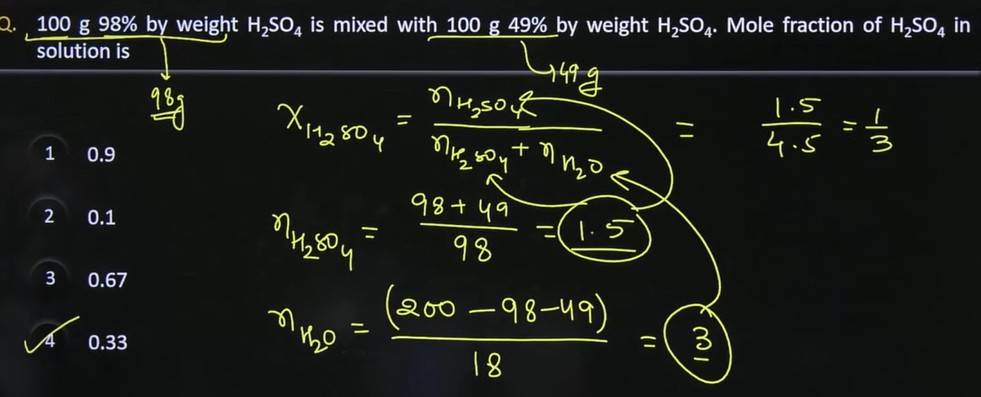 Q. 100 g 98% by weight H₂SO₄ is mixed with 100 g 49% by weight H₂SO₄. Mole fraction of H₂SO₄ in
solution is
98g
49g
1 0.9
2 0.1
3 0.67
4 0.33
X_H₂SO₄ = n_H₂SO₄ / (n_H₂SO₄ + n_H₂O) = 1.5/4.5 = 1/3
n_H₂SO₄ = (98+49)/98 = 1.5
n_H₂O = (200-98-49)/18 = 3